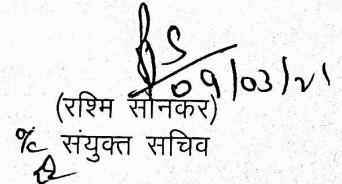 09/03/21
(रश्मि सोनकर)
संयुक्त सचिव